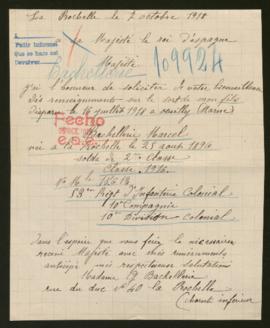 La Rochelle le 2 octobre 1918
a Sa Majesté le roi d'espagne
109924
Majesté
Bachellerie
j'ai l'honneur de soliciter de votre bienveillance
des renseignements sur le sort de mon fils
disparu le 16 juillet 1918 a (Marne)
Fecho
Bachellerie Marcel
né a la Rochelle le 25 août 1896
soldat de 2me Classe
Classe 1916
No Mle
53me Régt d'Infanterie Colonial
10e Compagnie
10e Division colonial
Dans l'espoir que vous ferez le nécessaire
recevez Majesté avec mes remerciements
anticipés mes respectueuses salutations
Madame Bachellerie
rue du duc no 40 la Rochelle
(charente inférieure